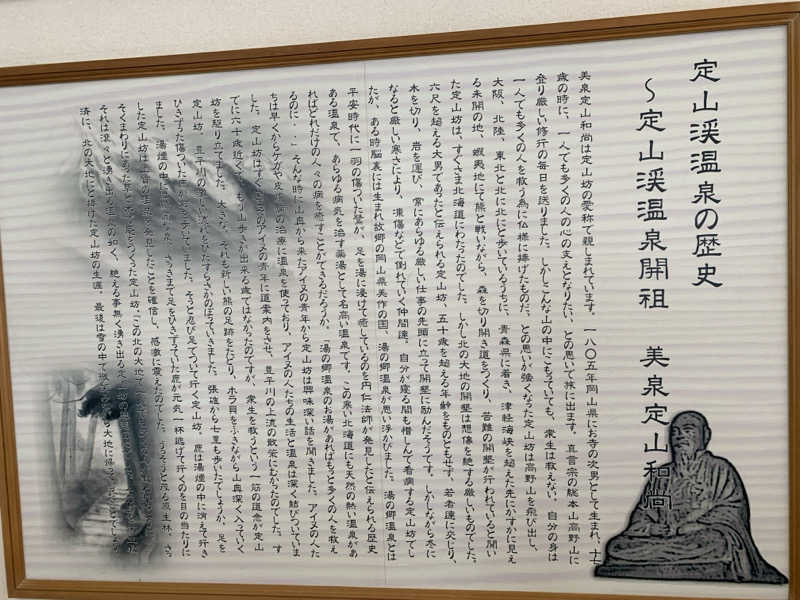 定山渓温泉の歴史
～定山渓温泉開祖　美泉定山和尚
美泉定山和尚は定山坊の愛称で親しまれています。一八〇五年岡山県にお寺の次男として生まれ、十七
歳の時に、一人でも多くの人の心の支えとなりたい、との思いで旅に出ます。真言宗の総本山高野山に
登り厳しい修行の毎日を送りました。しかしこんな山の中にこもっていても、衆生は救えない、自分の身は
一人でも多くの人を救う為に仏様に捧げたものだ、との思いが強くなった定山坊は高野山を飛び出し、
大阪、北陸、東北と北に北にと歩いているうちに、青森県に着き、津軽海峡を越えた先にかすかに見え
る未開の地、蝦夷地にて熊と戦いながら、森を切り開き道をつくり、苦難の開墾が行われていると聞い
た定山坊は、すぐさま北海道にわたったのでした。しかし北の大地の開墾は想像を絶する厳しいものでした。
六尺を超える大男であったと伝えられる定山坊、五十歳を超える年齢をものともせず、若者達に交じり、
木を切り、岩を運び、常にあらゆる厳しい仕事の先頭に立って開墾に励んだそうです。しかしながら冬に
なると厳しい寒さにより、凍傷などで倒れていく仲間達。自分が寝る間も惜しんで看病する定山坊でし
たが、ある時脳裏には生まれ故郷の岡山県美作の国、湯の郷温泉が思い浮かびました。湯の郷温泉とは
平安時代に一羽の傷ついた鷺が、足を湯に浸けて癒しているのを円仁法師が発見したと伝えられる歴史
ある温泉で、あらゆる病気を治す薬湯として名高い温泉です。この寒い北海道にも天然の熱い温泉があ
ればどれだけの人々の病を癒すことができるだろうか、「湯の郷温泉のお湯があればもっと多くの人を救え
るのに・・」そんな時に山奥から来たアイヌの青年から定山坊は興味深い話を聞きました。アイヌの人た
ちは早くからケガや皮 の治療に温泉を使っており、アイヌの人たちの生活と温泉は深く結びついていま
した。定山坊はすぐ のアイヌの青年に道案内をさせ、豊平川の上流の散策にむかったのでした。す
でに六十歳近く もう山歩きが出来る歳ではなかったのですが、衆生を救うという一筋の道念が定山
坊を駆り立てました。大きな、それも新しい熊の足跡をたどり、ホラ貝をふきながら山奥深く入っていく
定山坊、豊平川の い流れをひたすらさかのぼっていきました。張碓から七里も歩いたでしょうか、足を
ひきずった傷ついた 歩いて ました。そっと忍び足でついて行く定山坊、鹿は湯煙の中に消えて行き
ました。湯煙の中に さっきまで足をひきずっていた鹿が元気一杯逃げて行くのを目の当たりに
した定山坊は 発見したことを確信し、感激に震えたのでした。うっそうと茂る原生林、さっ
そくまわりにあった をつくった定山坊、この北の大地で
それは滾々と湧き出る温泉の如く、絶える事無く湧き出る定山坊の
済に、北の大地に 捧げた定山坊の生涯。最後は雪の中で 大地に帰った